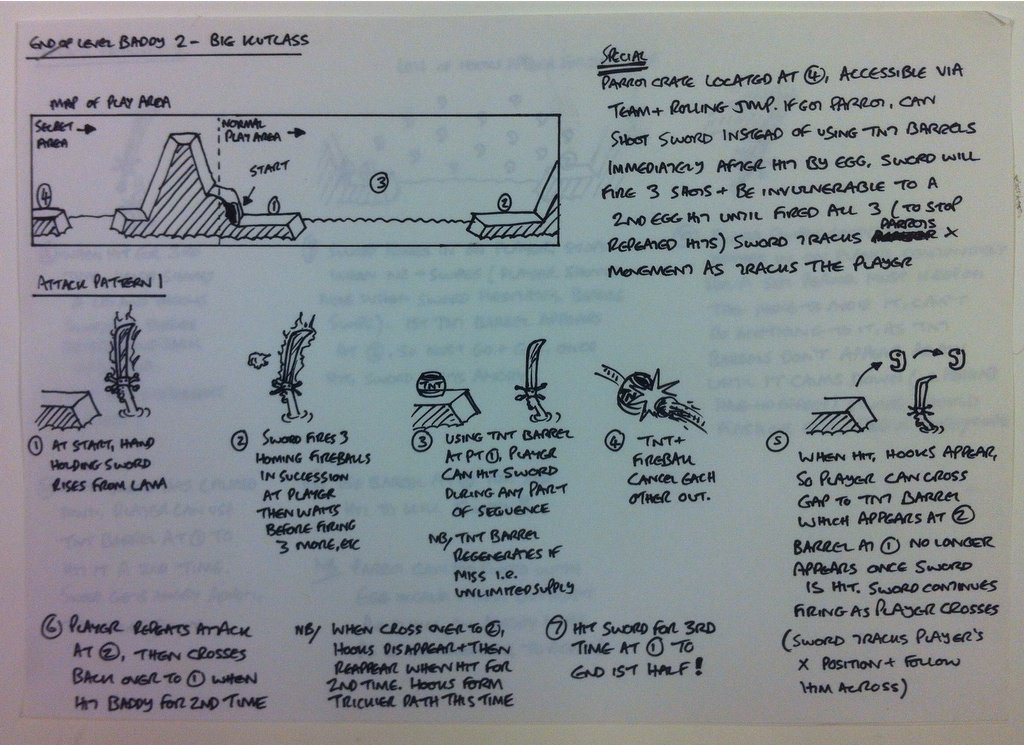 END OF LEVEL BADDY 2 - BIG KUTLASS
MAP OF PLAY AREA
SECRET → AREA
NORMAL PLAY AREA →
START
④
①
③
②
SPECIAL
PARROT CRATE LOCATED AT ④, ACCESSIBLE VIA
TEAM + ROLLING JUMP. IF GOT PARROT, CAN
SHOOT SWORD INSTEAD OF USING TNT BARRELS
IMMEDIATELY AFTER HIT BY EGG, SWORD WILL
FIRE 3 SHOTS + BE INVULNERABLE TO A
2ND EGG HIT UNTIL FIRED ALL 3 (TO STOP
REPEATED HITS) SWORD TRACKS PARROTS X
MOVEMENT AS TRACKS THE PLAYER
ATTACK PATTERN 1
① AT START, HAND
HOLDING SWORD
RISES FROM LAVA
② SWORD FIRES 3
HOMING FIREBALLS
IN SUCCESSION
AT PLAYER
THEN WAITS
BEFORE FIRING
3 MORE, ETC
TNT
③ USING TNT BARREL
AT PT ①, PLAYER
CAN HIT SWORD
DURING ANY PART
OF SEQUENCE
NB/ TNT BARREL
REGENERATES IF
MISS I.E.
UNLIMITED SUPPLY
TNT
④ TNT +
FIREBALL
CANCEL EACH
OTHER OUT.
⑤ WHEN HIT, HOOKS APPEAR,
SO PLAYER CAN CROSS
GAP TO TNT BARREL
WHICH APPEARS AT ②
BARREL AT ① NO LONGER
APPEARS ONCE SWORD
IS HIT. SWORD CONTINUES
FIRING AS PLAYER CROSSES
(SWORD TRACKS PLAYER'S
X POSITION + FOLLOW
HIM ACROSS)
⑥ PLAYER REPEATS ATTACK
AT ②, THEN CROSSES
BACK OVER TO ① WHEN
HIT BADDY FOR 2ND TIME
NB/ WHEN CROSS OVER TO ②,
HOOKS DISAPPEAR + THEN
REAPPEAR WHEN HIT FOR
2ND TIME. HOOKS FORM
TRICKIER PATH THIS TIME
⑦ HIT SWORD FOR 3RD
TIME AT ① TO
END 1ST HALF!